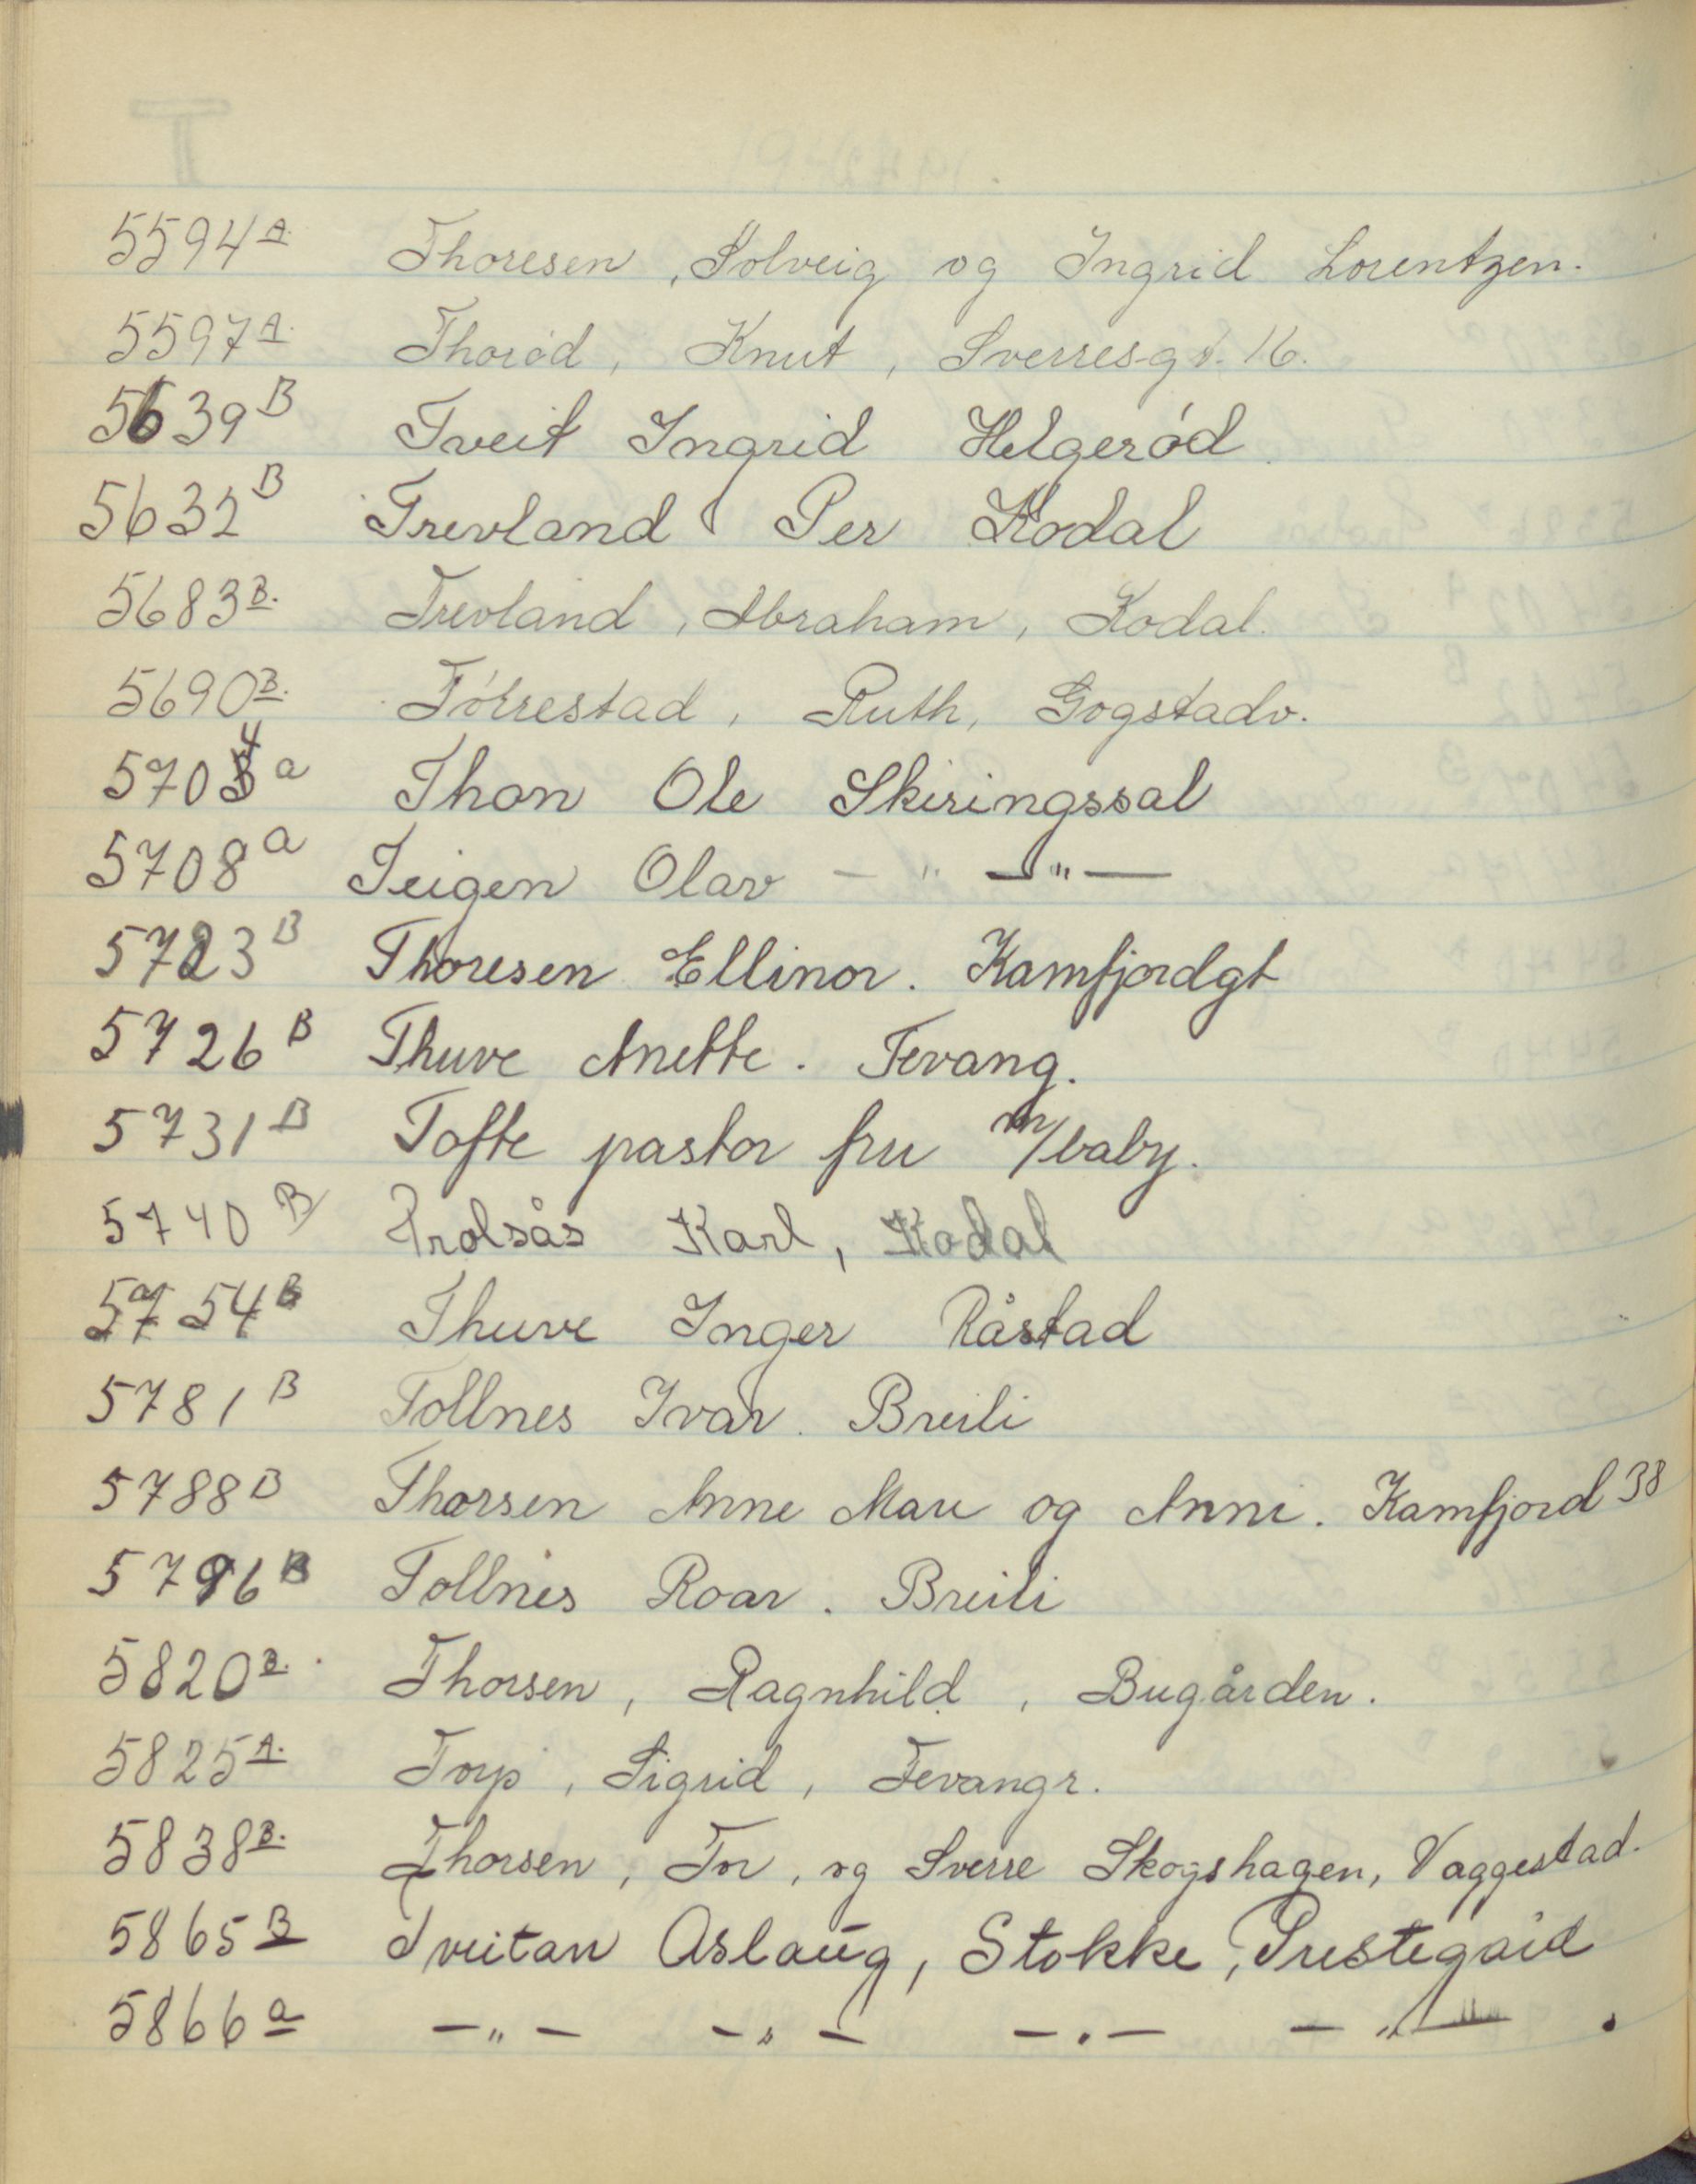 5594 A. Thoresen, Solveig og Ingrid Lorentzen.
5597 A. Thorød, Knut, Sverresgt. 16.
5639 B Tveit Ingrid Helgerød
5632 B Trevland Per Kodal
5683 B. Trevland, Abraham, Kodal.
5690 B. Tørrestad, Ruth, Gogstadv.
5704 a Thon Ole Skiringssal
5708 a Teigen Olav - " - " -
5723 B Thoresen Ellinor. Kamfjordgt
5726 B Thuve Anette. Tevang.
5731 B Tofte pastor fru m/baby.
5740 B Trolsås Karl, Kodal
5754 B Thuve Inger Råstad
5781 B Tollnes Ivar. Breili
5788 B Thorsen Anne Mari og Anni. Kamfjord 38
5796 B Tollnes Roar. Breili
5820 B. Thorsen, Ragnhild, Bugården.
5825 A. Torp, Sigrid, Tevangr.
5838 B. Thorsen, Tor, og Sverre Skogshagen, Vaggestad.
5865 B Tveitan Aslaug, Stokke, Prestegård
5866 a - " - - " - - . - - " - .